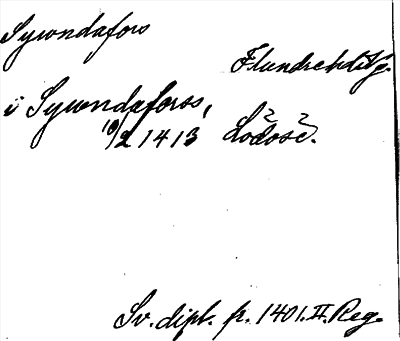 Sywndafors
Flundreh. Vg.
i Sywndaforss,
10/2 1413 Lödose.
Sv. dipl. fr. 1401. II. Reg.